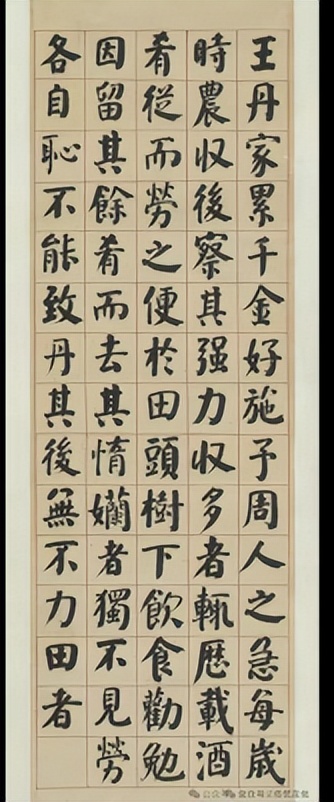 王丹家累千金好施予周人之急每歲
時農収後察其强力収多者輒歷載酒
肴從而勞之便於田頭樹下飲食勸勉
因留其餘肴而去其惰嬾者獨不見勞
各自恥不能致丹其後無不力田者